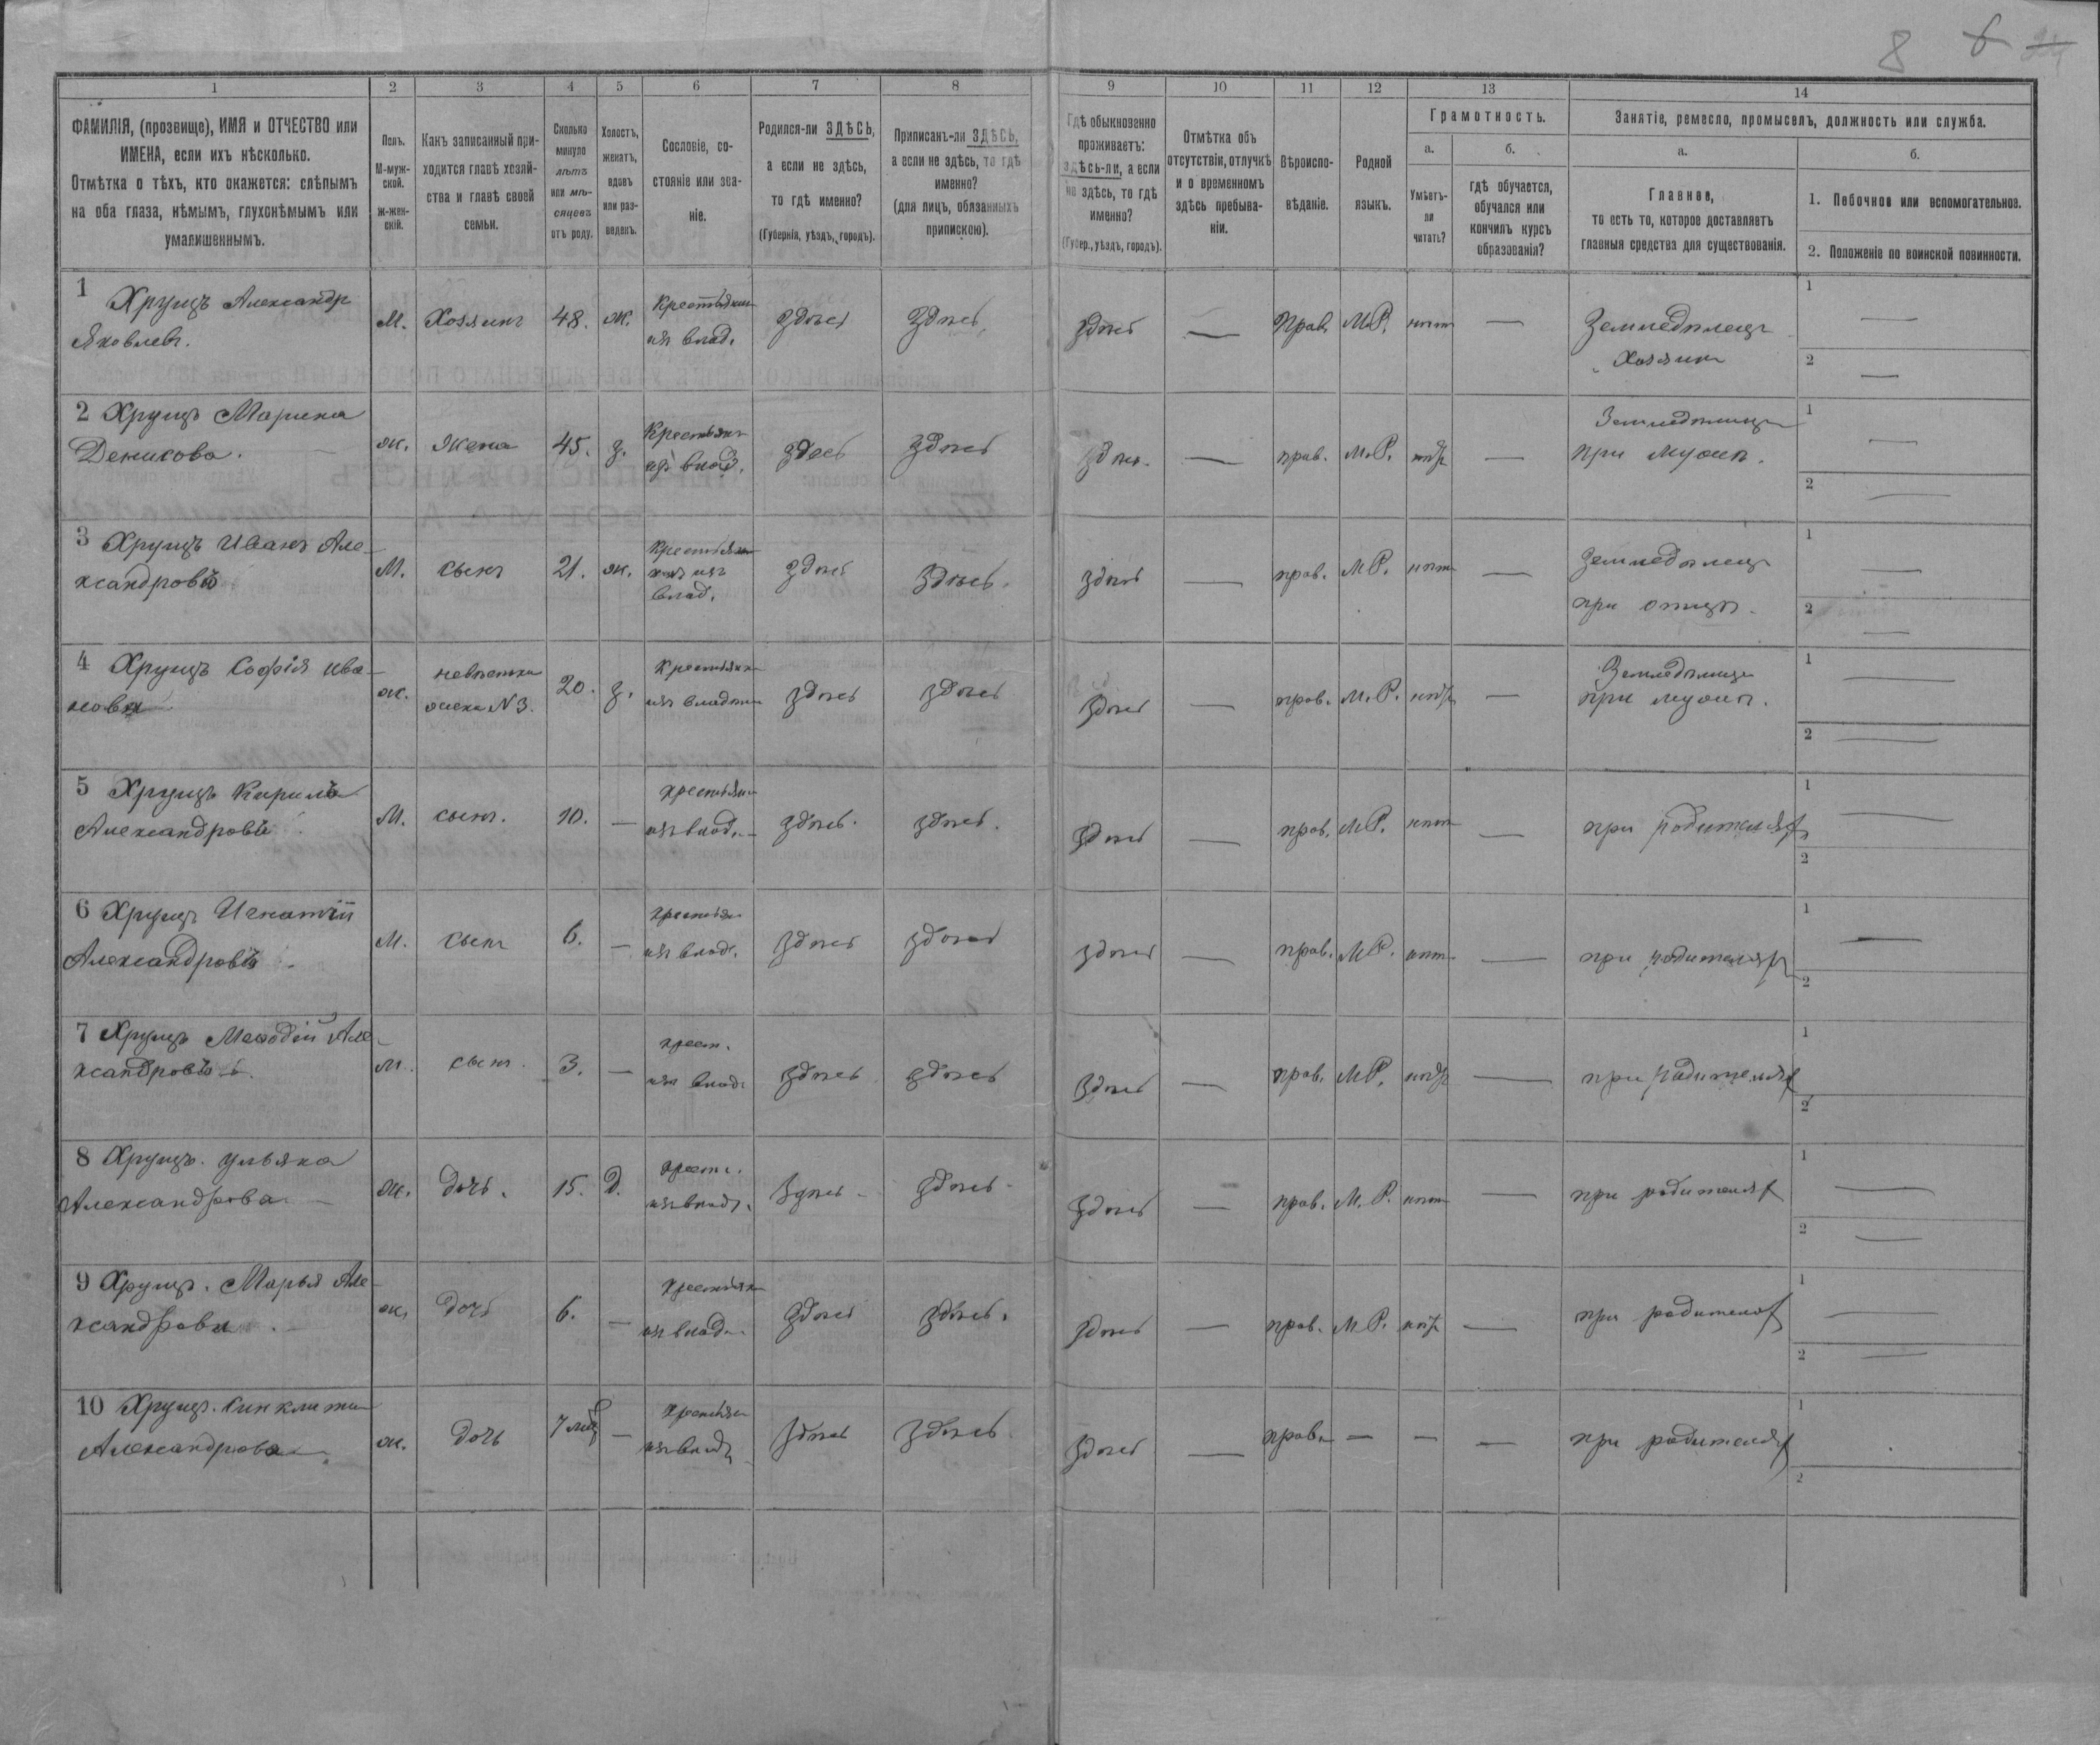 8 6
1 2 3 4 5 6 7 8 9 10 11 12 13 14
ФАМИЛІЯ, (прозвище), ИМЯ и ОТЧЕСТВО или
ИМЕНА, если ихъ нѣсколько.
Отмѣтка о тѣхъ, кто окажется: слѣпымъ
на оба глаза, нѣмымъ, глухонѣмымъ или
умалишеннымъ.
Полъ.
М-муж-
ской.
ж-жен-
скій.
Какъ записанный при-
ходится главѣ хозяй-
ства и главѣ своей
семьи.
Сколько
минуло
лѣтъ
или мѣ-
сяцевъ
отъ роду.
Холостъ,
женатъ,
вдовъ
или раз-
веденъ.
Сословіе, со-
стояніе или зва-
ніе.
Родился-ли ЗДѢСЬ,
а если не здѣсь,
то гдѣ именно?
(Губернія, уѣздъ, городъ).
Приписанъ-ли ЗДѢСЬ,
а если не здѣсь, то гдѣ
именно?
(для лицъ, обязанныхъ
припискою).
Гдѣ обыкновенно
проживаетъ:
здѣсь-ли, а если
не здѣсь, то гдѣ
именно?
(Губер., уѣздъ, городъ).
Отмѣтка объ
отсутствіи, отлучкѣ
и о временномъ
здѣсь пребыва-
ніи.
Вѣроиспо-
вѣданіе.
Родной
языкъ.
Грамотность.
а.
Умѣетъ-
ли
читать?
б.
гдѣ обучается,
обучался или
кончилъ курсъ
образованія?
Занятіе, ремесло, промыселъ, должность или служба.
а.
Главное,
то есть то, которое доставляетъ
главныя средства для существованія.
б.
1. Побочное или вспомогательное.
2. Положеніе по воинской повинности.
1 Хрущъ Александр
Яковлевъ.
М. Хозяинъ 48. ж. Крестьянин
изъ влад. здѣсь здѣсь здѣсь — Прав. М.Р. нѣт —
Земледѣлецъ
Хозяин
1 —
2 —
2 Хрущъ Марина
Денисова.
ж. Жена 45. з. Крестьян
изъ влад. здесь здѣсь здѣсь. — прав. М.Р. нѣтъ —
Земледѣлица
при мужѣ.
1 —
2 —
3 Хрущъ Иванъ Але-
ксандровъ
М. сынъ 21. ж. Крестьян
изъ
влад. здѣсь здѣсь. здѣсь — прав. М.Р. нѣт —
Земледѣлец
при отцѣ.
1 —
2 —
4 Хрущъ Софія Ива-
нова
ж. невѣстка
жена №3. 20. з. Крестьянка
изъ владѣл здѣсь здѣсь здѣсь — прав. М.Р. нѣтъ —
Земледѣлица
при мужѣ.
1 —
2 —
5 Хрущъ Кирилъ
Александровъ
М. сынъ. 10. — крестьян
изъ влад. здѣсь. здѣсь. здѣсь — прав. М.Р. нѣт —
при родителях
1 —
2
6 Хрущъ Игнатій
Александровъ
М. сынъ 6. — крестьян
изъ влад. здѣсь здѣсь здѣсь — прав. М.Р. нѣт —
при родителях
1 —
2
7 Хрущъ Меѳодій Але-
ксандровъ
М. сынъ. 3. — крест.
изъ влад. здѣсь здѣсь здѣсь — прав. М.Р. нѣтъ —
при родителях
1
2
8 Хрущъ. Ульяна
Александрова
ж. дочь. 15. д. крест.
изъ влад. здѣсь здѣсь здѣсь — прав. М.Р. нѣт —
при родителях
1 —
2 —
9 Хрущъ. Марья Але-
ксандрова
ж. дочь 6. — крестьян
изъ влад. здѣсь здѣсь. здѣсь — прав. М.Р. нѣтъ —
при родителях
1 —
2 —
10 Хрущъ. Синклити
Александрова
ж. дочь 7 — крестьян
изъ влад. здѣсь здѣсь здѣсь — прав. — — —
при родителях
1
2